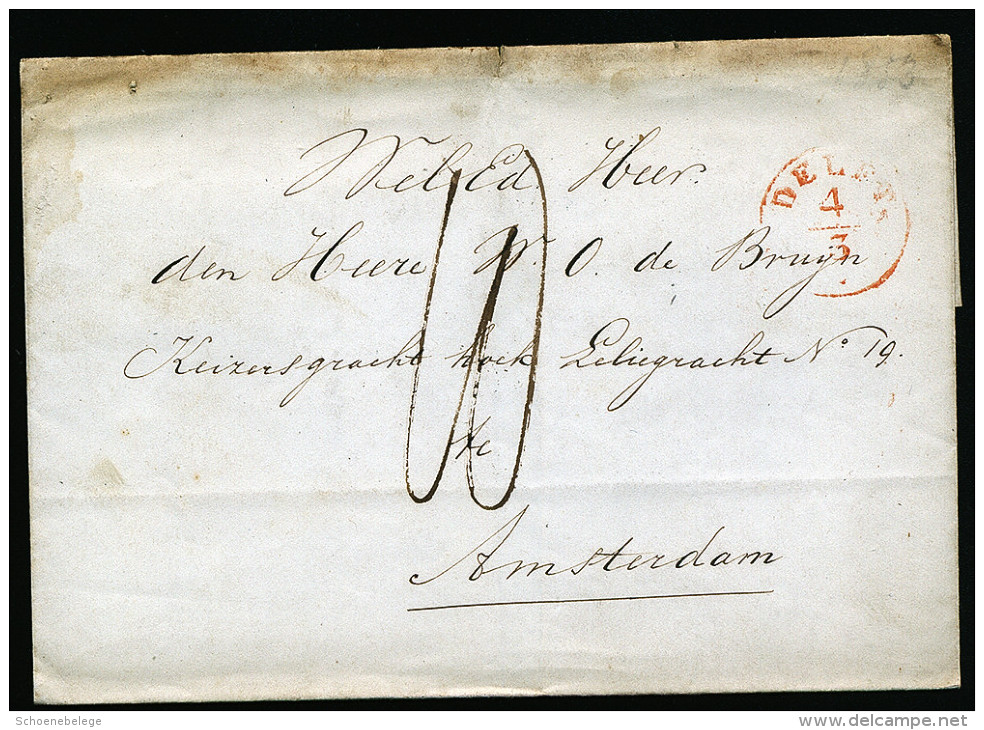 WelEd. Heer.
den Heere W. O. de Bruyn
Keizersgracht hoek Leliegracht No 19.
te
Amsterdam
DELFT
4
3
10
Schoenebelege
delcampe.net